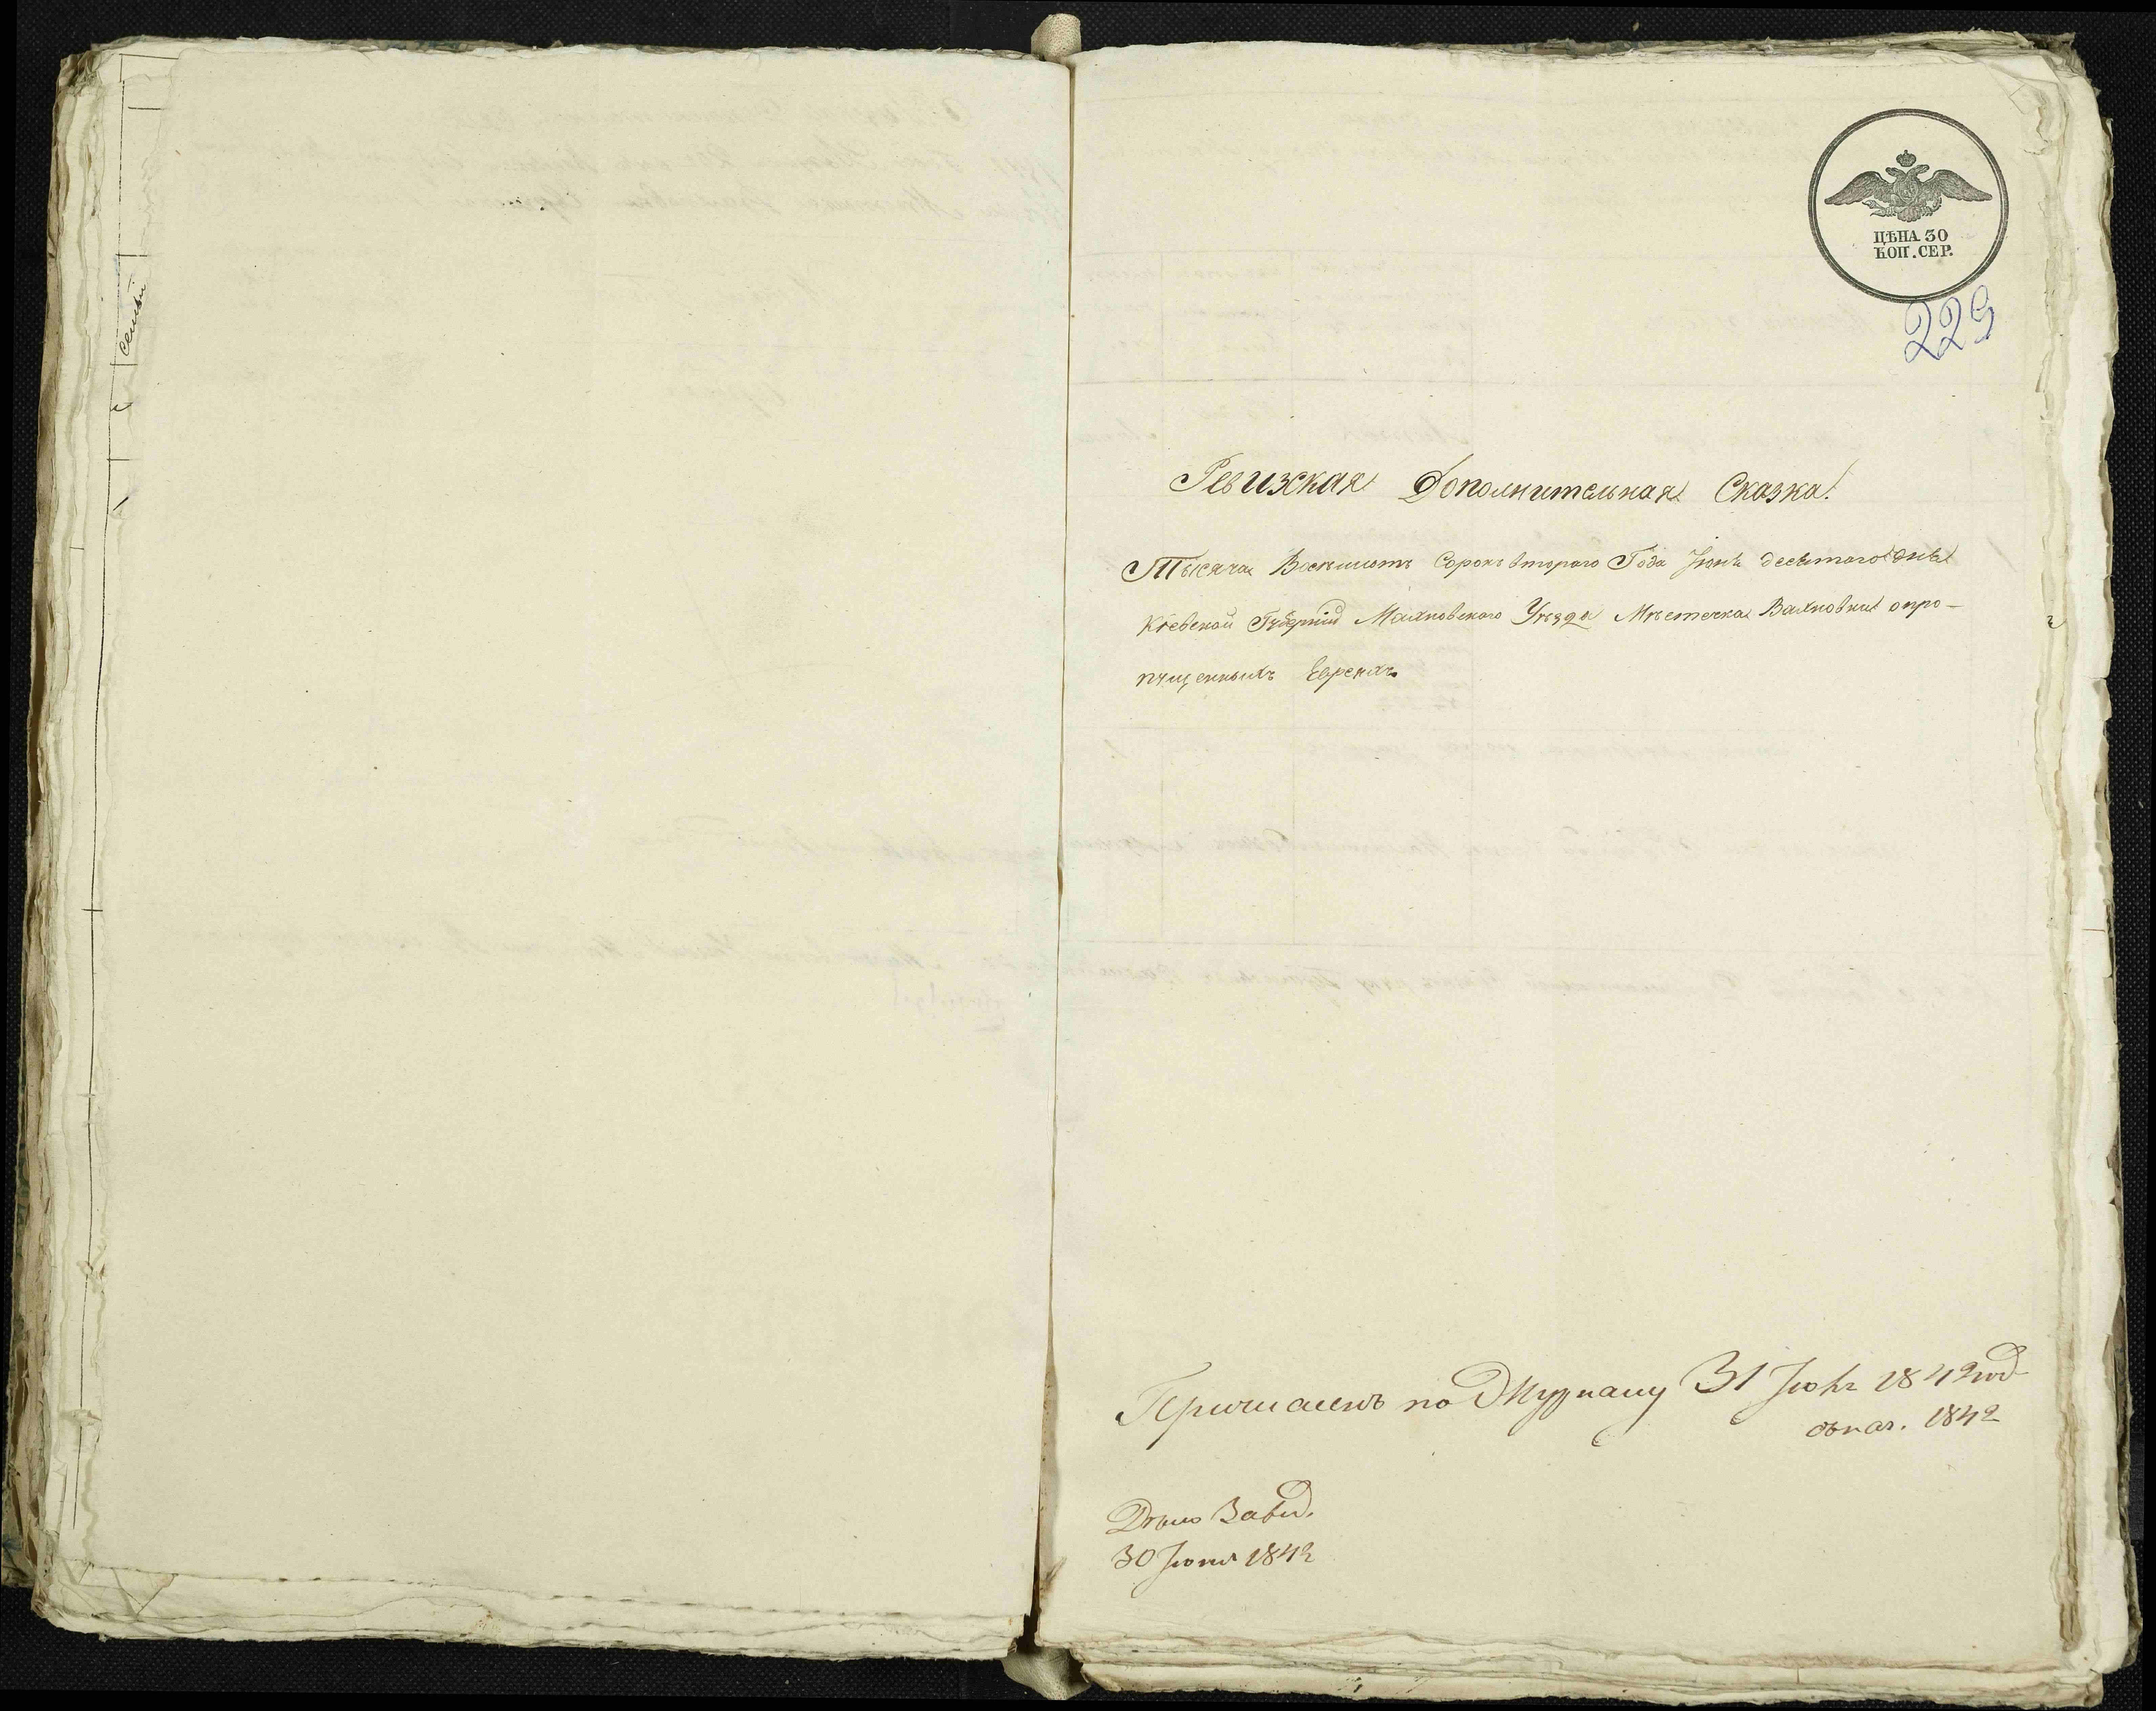 семьи
ЦѢНА 30
КОП. СЕР.
229
Ревизская Дополнительная Сказка.
Тысяча Восемьсотъ Сорокъ втораго Года Іюня десятаго дня
Кіевской Губерніи Махновскаго Уѣзда Мѣстечка Вахновки о про-
пущенныхъ Евреяхъ.
по Журналу 31 1842 год
1842
30 Іюня 1842